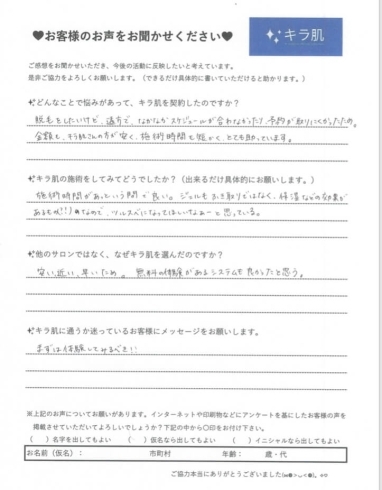 ♥お客様のお声をお聞かせください♥
キラ肌
ご感想をお聞かせいただき、今後の活動に反映したいと考えています。
是非ご協力をよろしくお願いします。（できるだけ具体的に書いていただけると助かります。）
どんなことで悩みがあって、キラ肌を契約したのですか？
脱毛をしたいけど、遠方で、なかなかスケジュールが合わなかったり、予約が取りにくかったため。
金額も、キラ肌さんの方が安く、施術時間も短かく、とても助っています。
キラ肌の施術をしてみてどうでしたか？（出来るだけ具体的にお願いします。）
施術時間があっという間で良い。ジェルもふき取りではなく、保湿などの効果が
あるもの!!なので、ツルスベになってほしいなぁーと思っている。
他のサロンではなく、なぜキラ肌を選んだのですか？
安い、近い、早いため。無料の体験があるシステムも良かったと思う。
キラ肌に通うか迷っているお客様にメッセージをお願いします。
まずは体験してみるべき!!
※上記のお声についてお願いがあります。インターネットや印刷物などにアンケートを基にしたお客様の声を
掲載させていただいてよろしいでしょうか？下記の中から〇印をお付け下さい。
（　）名字を出してもよい　（　）仮名なら出してもよい　（　）イニシャルなら出してもよい
お名前（仮名）：　市町村　年齢：　歳・代
ご協力本当にありがとうございました